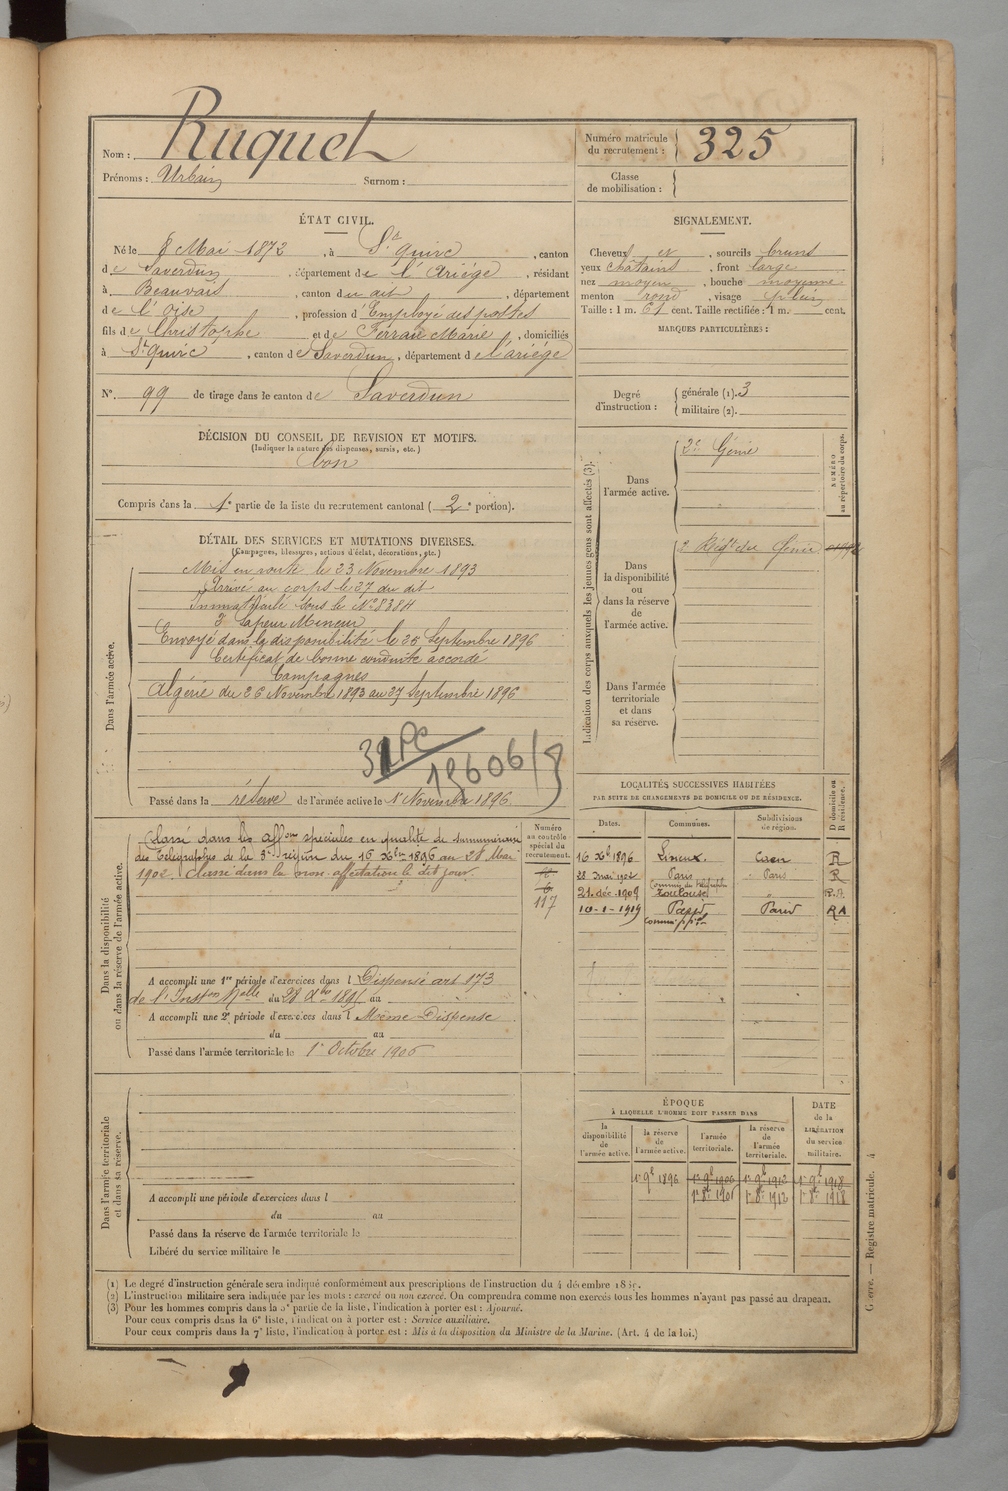 Nom : Ruquet
Prénoms : Urbain Surnom :
Numéro matricule
du recrutement : 325
Classe
de mobilisation :
ÉTAT CIVIL.
Né le 8 Mai 1872, à St Quirc, canton
de Saverdun, département de l'Ariége, résidant
à Beauvais, canton du dit, département
de l'Oise, profession d'Employé des postes
fils de Christophe et de Ferran Marie, domiciliés
à St Quirc, canton de Saverdun, département de l'ariége
N° 99 de tirage dans le canton de Saverdun
DÉCISION DU CONSEIL DE REVISION ET MOTIFS.
(Indiquer la nature des dispenses, sursis, etc.)
bon
Compris dans la 1e partie de la liste du recrutement cantonal ( 2e portion).
SIGNALEMENT.
Cheveux et, sourcils bruns
yeux châtains, front large
nez moyen, bouche moyenne
menton rond, visage plein
Taille : 1 m. 61 cent. Taille rectifiée : 1 m. cent.
MARQUES PARTICULIÈRES :
Degré
d'instruction :
générale (1). 3
militaire (2).
DÉTAIL DES SERVICES ET MUTATIONS DIVERSES.
(Campagnes, blessures, actions d'éclat, décorations, etc.)
Dans l'armée active.
Mis en route le 23 Novembre 1893
Arrivé au corps le 27 du dit
Immatriculé sous le N° 8384
Sapeur Mineur
Envoyé dans la disponibilité le 25 Septembre 1896
Certificat de bonne conduite accordé
Campagnes
Algérie du 26 Novembre 1893 au 27 Septembre 1896
15606/8
Passé dans la réserve de l'armée active le 1 Novembre 1896.
Indication des corps auxquels les jeunes gens sont affectés (3).
NUMÉRO
au répertoire du corps.
Dans
l'armée active.
2e Génie
Dans
la disponibilité
ou
dans la réserve
de
l'armée active.
2 Régt du Génie
Dans l'armée
territoriale
et dans
sa réserve.
Dans la disponibilité
ou dans la réserve de l'armée active.
Numéro
au contrôle
spécial du
recrutement.
Classé dans les affons spéciales en qualité de surnuméraire
des Télégraphes de la 3e région du 16 Xbre 1896 au 28 Mai
1902. Classé dans la non affectation le dit jour.
117
A accompli une 1re période d'exercices dans l Dispensé art 173
de l'Inston Melle du 28 Xbre 189 au
A accompli une 2e période d'exercices dans l Même Dispense
du au
Passé dans l'armée territoriale le 1r Octobre 1906
LOCALITÉS SUCCESSIVES HABITÉES
PAR SUITE DE CHANGEMENTS DE DOMICILE OU DE RÉSIDENCE.
D domicile ou
R résidence.
Dates. Communes. Subdivisions
de région.
16 Xbre 1896 Lisieux. Caen R
28 mai 1902 Paris Paris R
21. déc. 1909 Toulouse " R.A.
10-1-1919 Paris Paris RA
Dans l'armée territoriale
et dans sa réserve.
A accompli une période d'exercices dans l
du au
Passé dans la réserve de l'armée territoriale le
Libéré du service militaire le
ÉPOQUE
À LAQUELLE L'HOMME DOIT PASSER DANS
DATE
de la
LIBÉRATION
du service
militaire.
la
disponibilité
de
l'armée active.
la réserve
de
l'armée active.
l'armée
territoriale.
la réserve
de
l'armée
territoriale.
1r 9bre 1896 1r 9bre 1906 1r 9bre 1912 1r 9bre 1918
1r 8bre 1906 1r 8bre 1912 1r 8bre 1918
(1) Le degré d'instruction générale sera indiqué conformément aux prescriptions de l'instruction du 4 décembre 18
(2) L'instruction militaire sera indiquée par les mots : exercé ou non exercé. On comprendra comme non exercés tous les hommes n'ayant pas passé au drapeau.
(3) Pour les hommes compris dans la 5e partie de la liste, l'indication à porter est : Ajourné.
Pour ceux compris dans la 6e liste, l'indication à porter est : Service auxiliaire.
Pour ceux compris dans la 7e liste, l'indication à porter est : Mis à la disposition du Ministre de la Marine. (Art. 4 de la loi.)
Guerre. — Registre matricule. 4